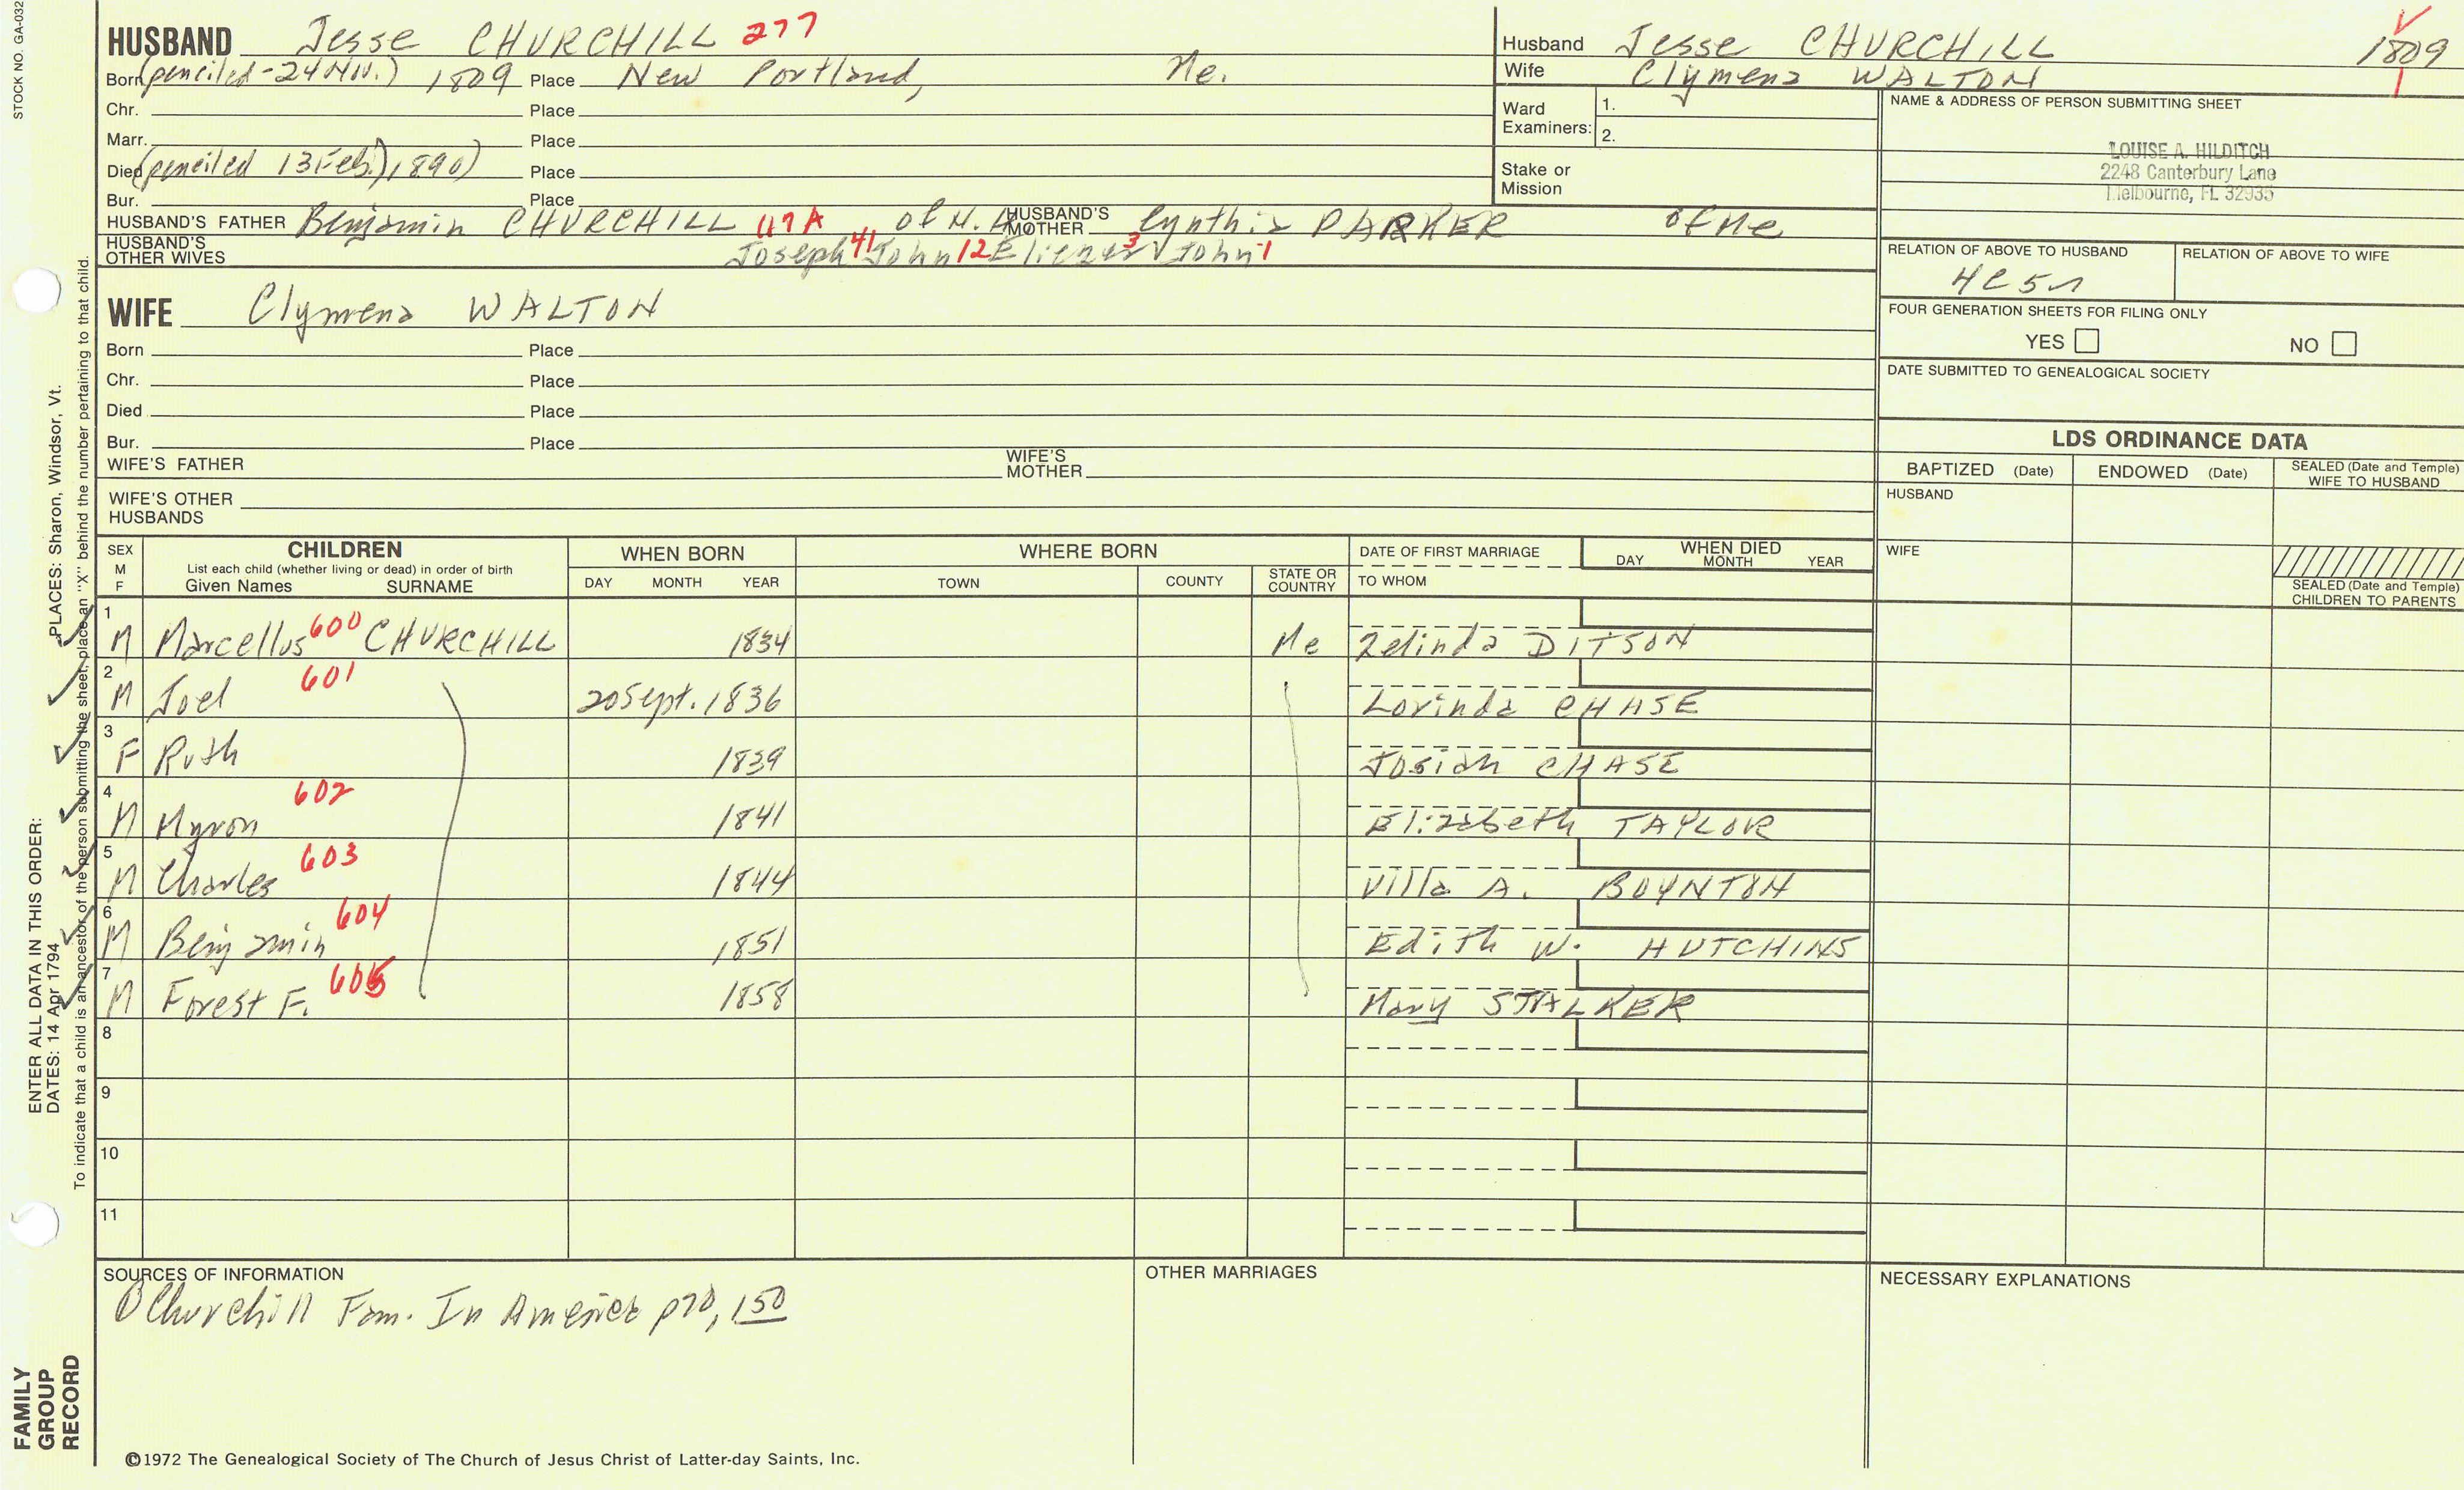 STOCK NO. GA-032
HUSBAND Jesse CHURCHILL 277
Born (penciled - 24 Nov.) 1809 Place New Portland, Me.
Chr. Place
Marr. Place
Died (penciled 13 Feb.) 1890) Place
Bur. Place
HUSBAND'S FATHER Benjamin CHURCHILL 117A of N. HUSBAND'S MOTHER Cynthia PARKER of Me
HUSBAND'S OTHER WIVES Joseph 41 John 12 Eliezer 3 John 1
WIFE Clymena WALTON
Born Place
Chr. Place
Died Place
Bur. Place
WIFE'S FATHER WIFE'S MOTHER
WIFE'S OTHER HUSBANDS
Husband Jesse CHURCHILL 1809
Wife Clymena WALTON
Ward Examiners: 1. 2.
Stake or Mission
NAME & ADDRESS OF PERSON SUBMITTING SHEET
LOUISE A. HILDITCH
2248 Canterbury Lane
Melbourne, FL 32935
RELATION OF ABOVE TO HUSBAND RELATION OF ABOVE TO WIFE
4C5r
FOUR GENERATION SHEETS FOR FILING ONLY
YES NO
DATE SUBMITTED TO GENEALOGICAL SOCIETY
LDS ORDINANCE DATA
BAPTIZED (Date) ENDOWED (Date) SEALED (Date and Temple) WIFE TO HUSBAND
HUSBAND
WIFE
SEALED (Date and Temple) CHILDREN TO PARENTS
SEX M F
CHILDREN
List each child (whether living or dead) in order of birth
Given Names SURNAME
WHEN BORN
DAY MONTH YEAR
WHERE BORN
TOWN COUNTY STATE OR COUNTRY
DATE OF FIRST MARRIAGE
TO WHOM
WHEN DIED
DAY MONTH YEAR
1 M Marcellus 600 CHURCHILL 1834 Me Zelinda DITSON
2 M Joel 601 20 Sept. 1836 Lovinda CHASE
3 F Ruth 1839 Josiah CHASE
4 M Myron 602 1841 Elizabeth TAYLOR
5 M Charles 603 1844 Villa A. BOYNTON
6 M Benjamin 604 1851 Edith W. HUTCHINS
7 M Forest F. 605 1858 Mary STALKER
8
9
10
11
SOURCES OF INFORMATION
① Churchill Fam. In America p70, 150
OTHER MARRIAGES
NECESSARY EXPLANATIONS
©1972 The Genealogical Society of The Church of Jesus Christ of Latter-day Saints, Inc.
FAMILY
GROUP
RECORD
ENTER ALL DATA IN THIS ORDER:
DATES: 14 Apr 1794 PLACES: Sharon, Windsor, Vt.
To indicate that a child is an ancestor of the person submitting the sheet, place an "X" behind the number pertaining to that child.